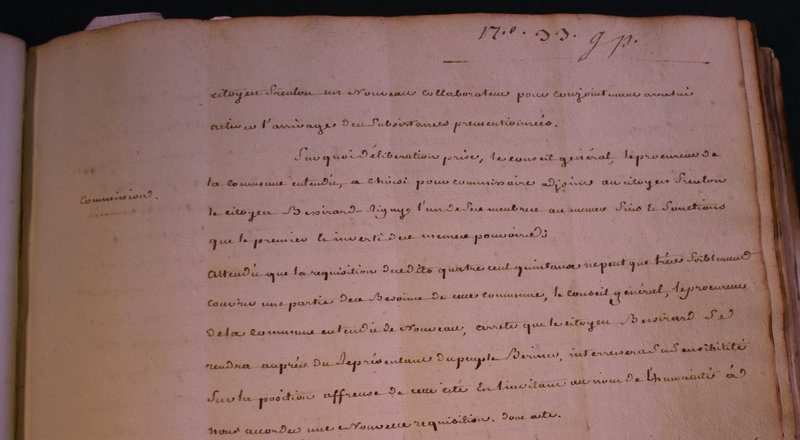 17.° 33. gp.
citoyen Freulon un Nouveau collaborateur pour conjointement avec lui
activer l'arrivage des Subsistances prementionnées.
Sur quoi délibération prise, le conseil général, le procureur de
Commission.
la commune entendu, a choisi pour commissaire adjoint au citoyen Freulon
le citoyen Bessirard l'un de Ses membres aux mêmes fins & fonctions
que le premier & investi des mêmes pouvoirs;
Attendu que la requisition desdits quatre cent quintaux ne peut que très foiblement
couvrir une partie des Besoins de cette commune, le conseil général, le procureur
de la commune entendu de Nouveau, arrete que le citoyen Bessirard Se
rendra auprès du Représentant du peuple interressera Sa Sensibilité
Sur la position affreuse de cette cité En l'invitant au nom de l'humanité á
nous accorder une Nouvelle requisition. dont acte.